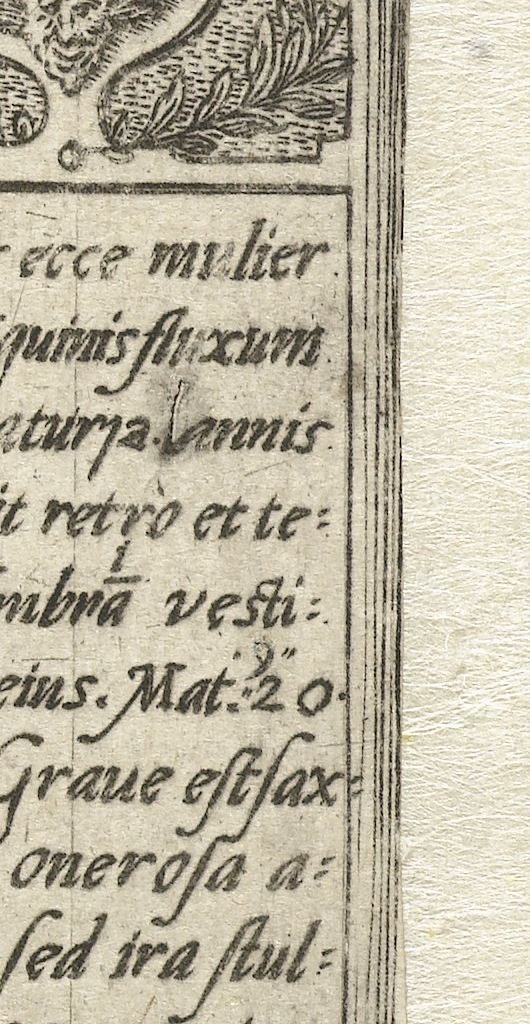 ecce mulier
quinis fluxum
annis
it retro et te=
mbrā vesti=
eius. Mat. 20.
Graue est sax=
onerosa a=
sed ira stul=